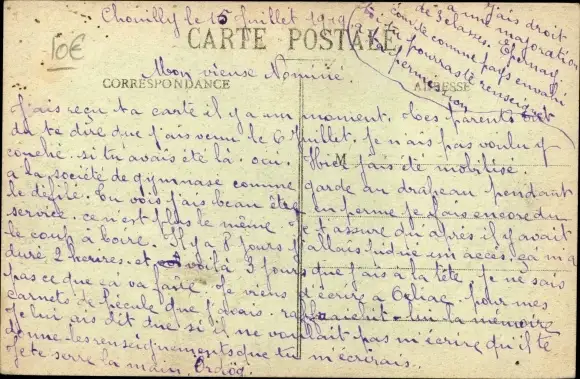 Chouilly le 15 Juillet 1919
J'ais droit
a une majoration
de 3 classes. Epernay
compte comme pays envahi
si tu pourras te renseigner
permission
10€
CARTE POSTALE
Mon vieux
CORRESPONDANCE
ADRESSE
J'ais reçu ta carte il y a un moment. Les parents
du te dire que j'ais venu le 6 Juillet. Je n'ais pas voulu y
couché. si tu avais été là. oui. Hier j'ais été mobilisé
M
a la société de gymnase comme garde au drapeau pendant
le défilé. Tu vois j'ais beau être en perme je fais encore du
service. ce n'est plus le même. Je t'assure qu'après il y avait
le coup à boire. Il y a 8 jours j'allais un accès. ça m'a
duré 2 heures. et voilà 3 jours que j'ais a la tête. je ne sais
pas ce que ça va faire. Je viens d'écrire a pour mes
carnets de pécule que j'avais. la mémoire
Je lui ais dit que si il ne voulait pas m'écrire qu'il te
donne les renseignements que tu m'écrirais.
Je te serre la main